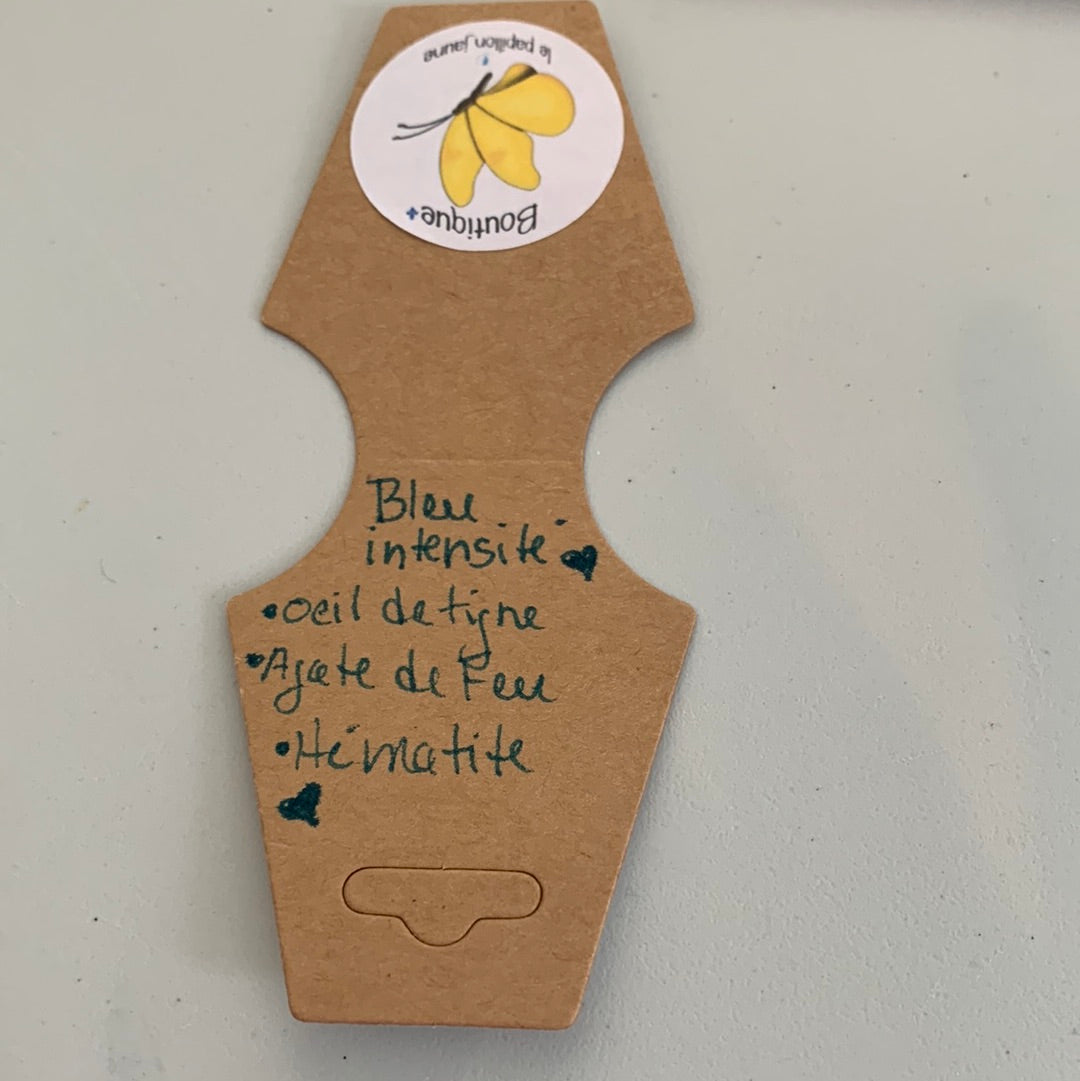 le papillon jaune
Boutique+
Bleu
intensité
• Oeil de tigne
• Agate de Feu
• Hématite